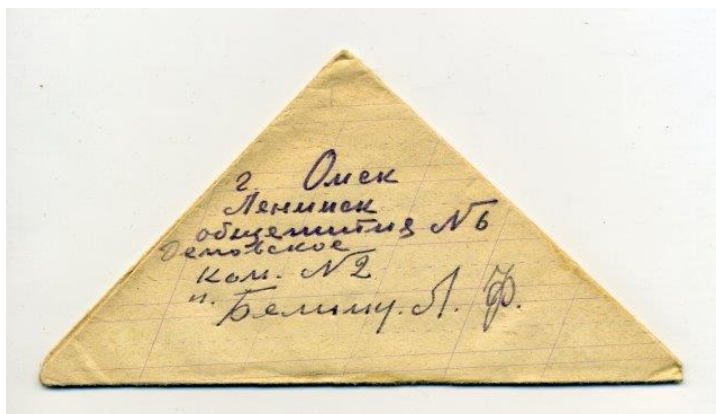 г. Омск
Ленинск
общежития №6
Деповское
ком. №2
п. Белину. Л. Ф.